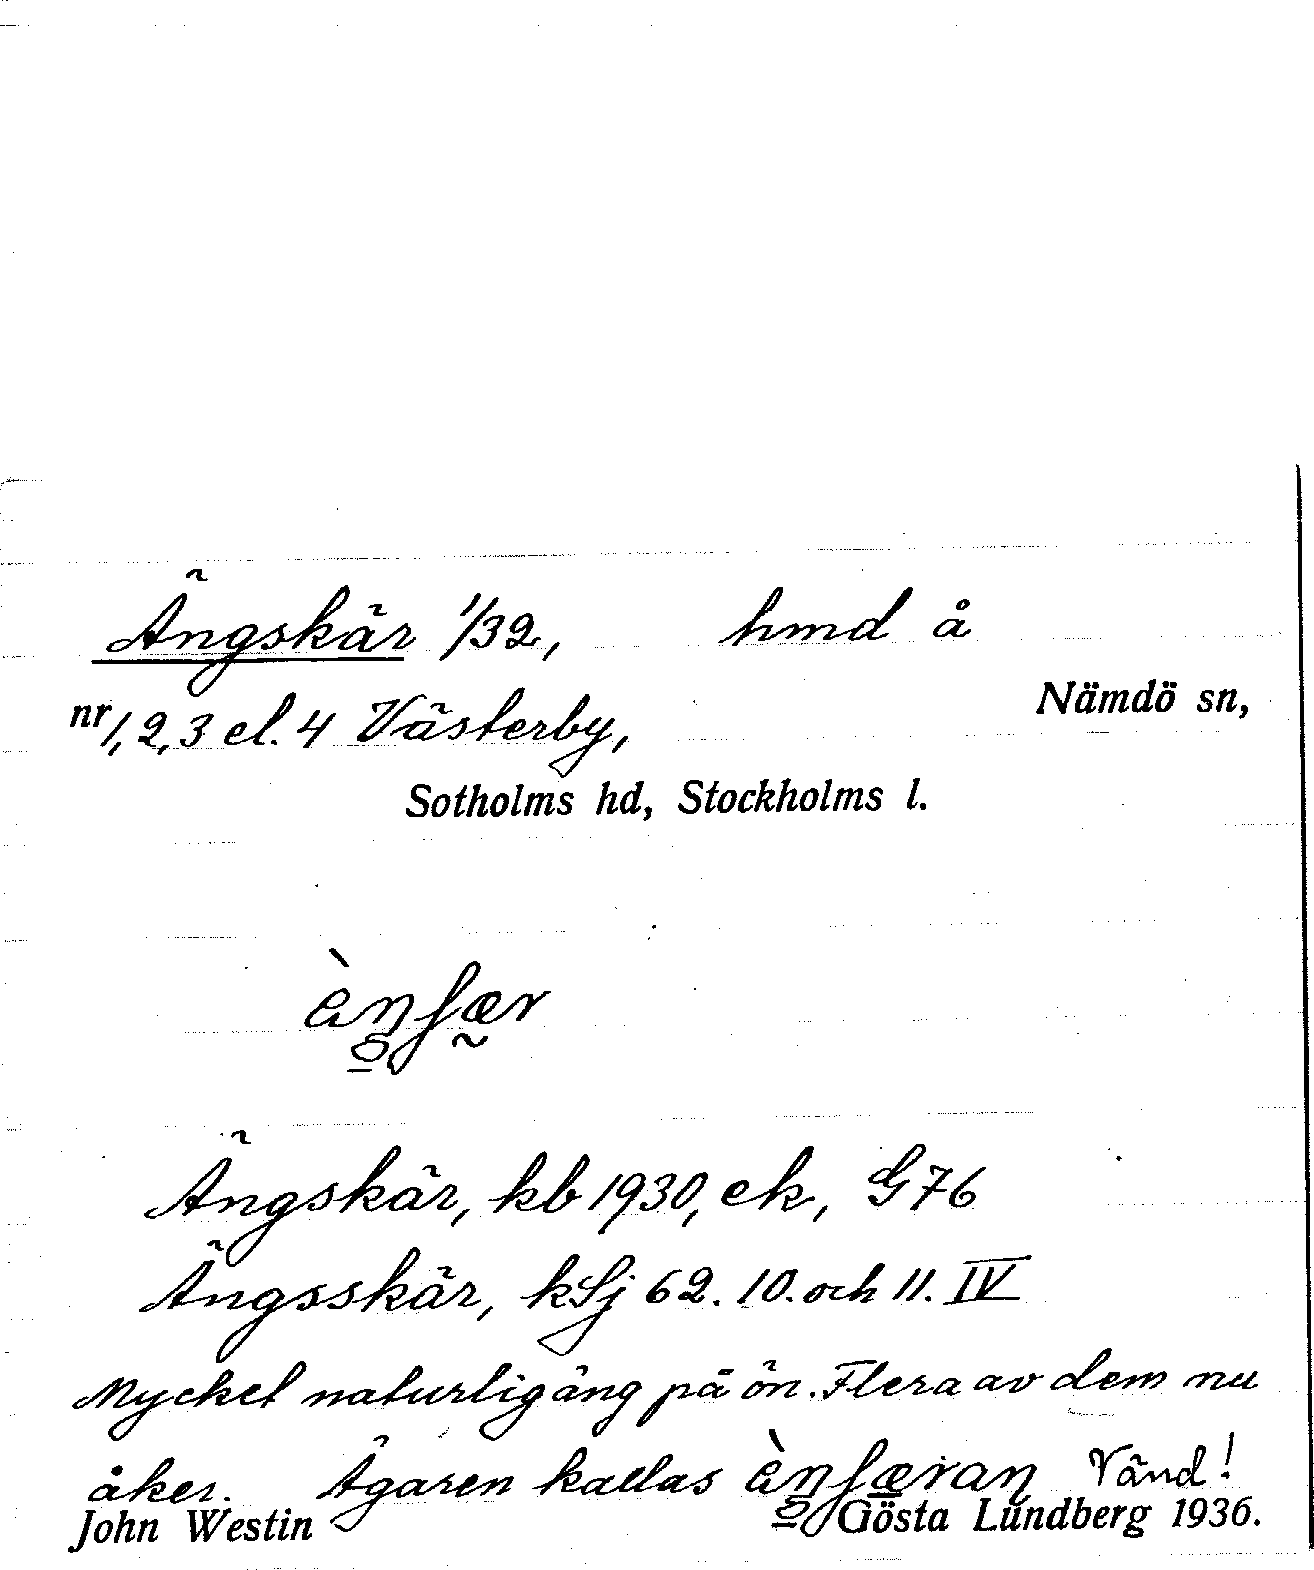 Ängskär 1/32, hmd å
nr 1, 2, 3 el. 4 Västerby, Nämdö sn,
Sotholms hd, Stockholms l.
Ängskär, kb 1930, ek, G 76
Ängsskär, kSj 62. 10. och 11. IV
Mycket naturlig äng på ön. Flera av dem nu
åker. Ägaren kallas Vänd!
John Westin Gösta Lundberg 1936.